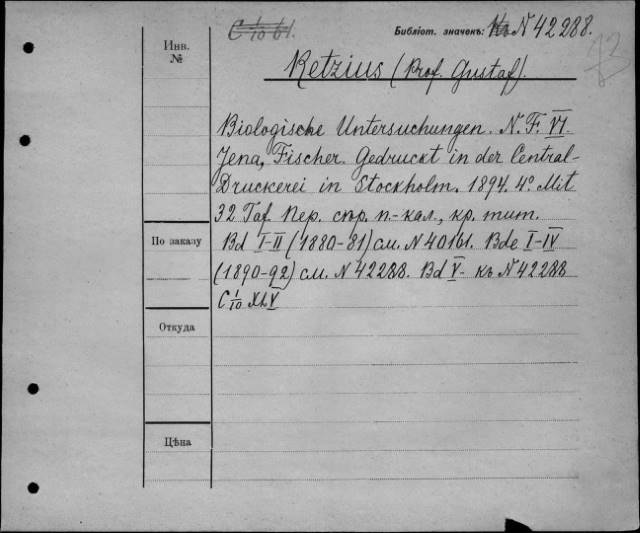 C 1/10 61.
Библіот. значекъ: Къ N 42288.
93
Инв. №
Retzius (Prof. Gustaf).
Biologische Untersuchungen. N. F. VI.
Jena, Fischer. Gedruckt in der Central-
Druckerei in Stockholm. 1894. 4º. Mit
32 Taf. Пер. стр. п.-кал., кр. тит.
По заказу
Bd I-II (1880-81) см. N 40161. Bde I-IV
(1890-92) см. N 42288. Bd V. къ N 42288
C 1/10
Откуда
Цѣна